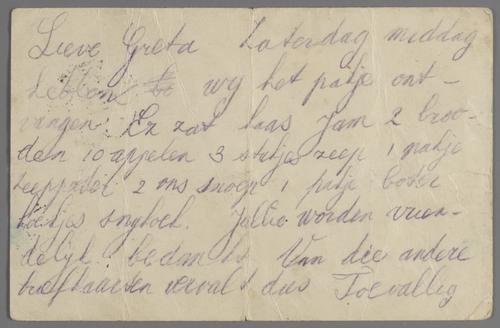 Lieve Greta Zaterdag middag
hebben wij het pakje ont-
vangen. Er zat kaas jam 2 broo-
den 10 appelen 3 stukjes zeep 1 pakje
zeeppoeder 2 ons snoep 1 pakje boter
koekjes snykoek. Jullie worden vrien-
delyk bedankt Van die andere
briefkaarten vervalt dus Toevallig